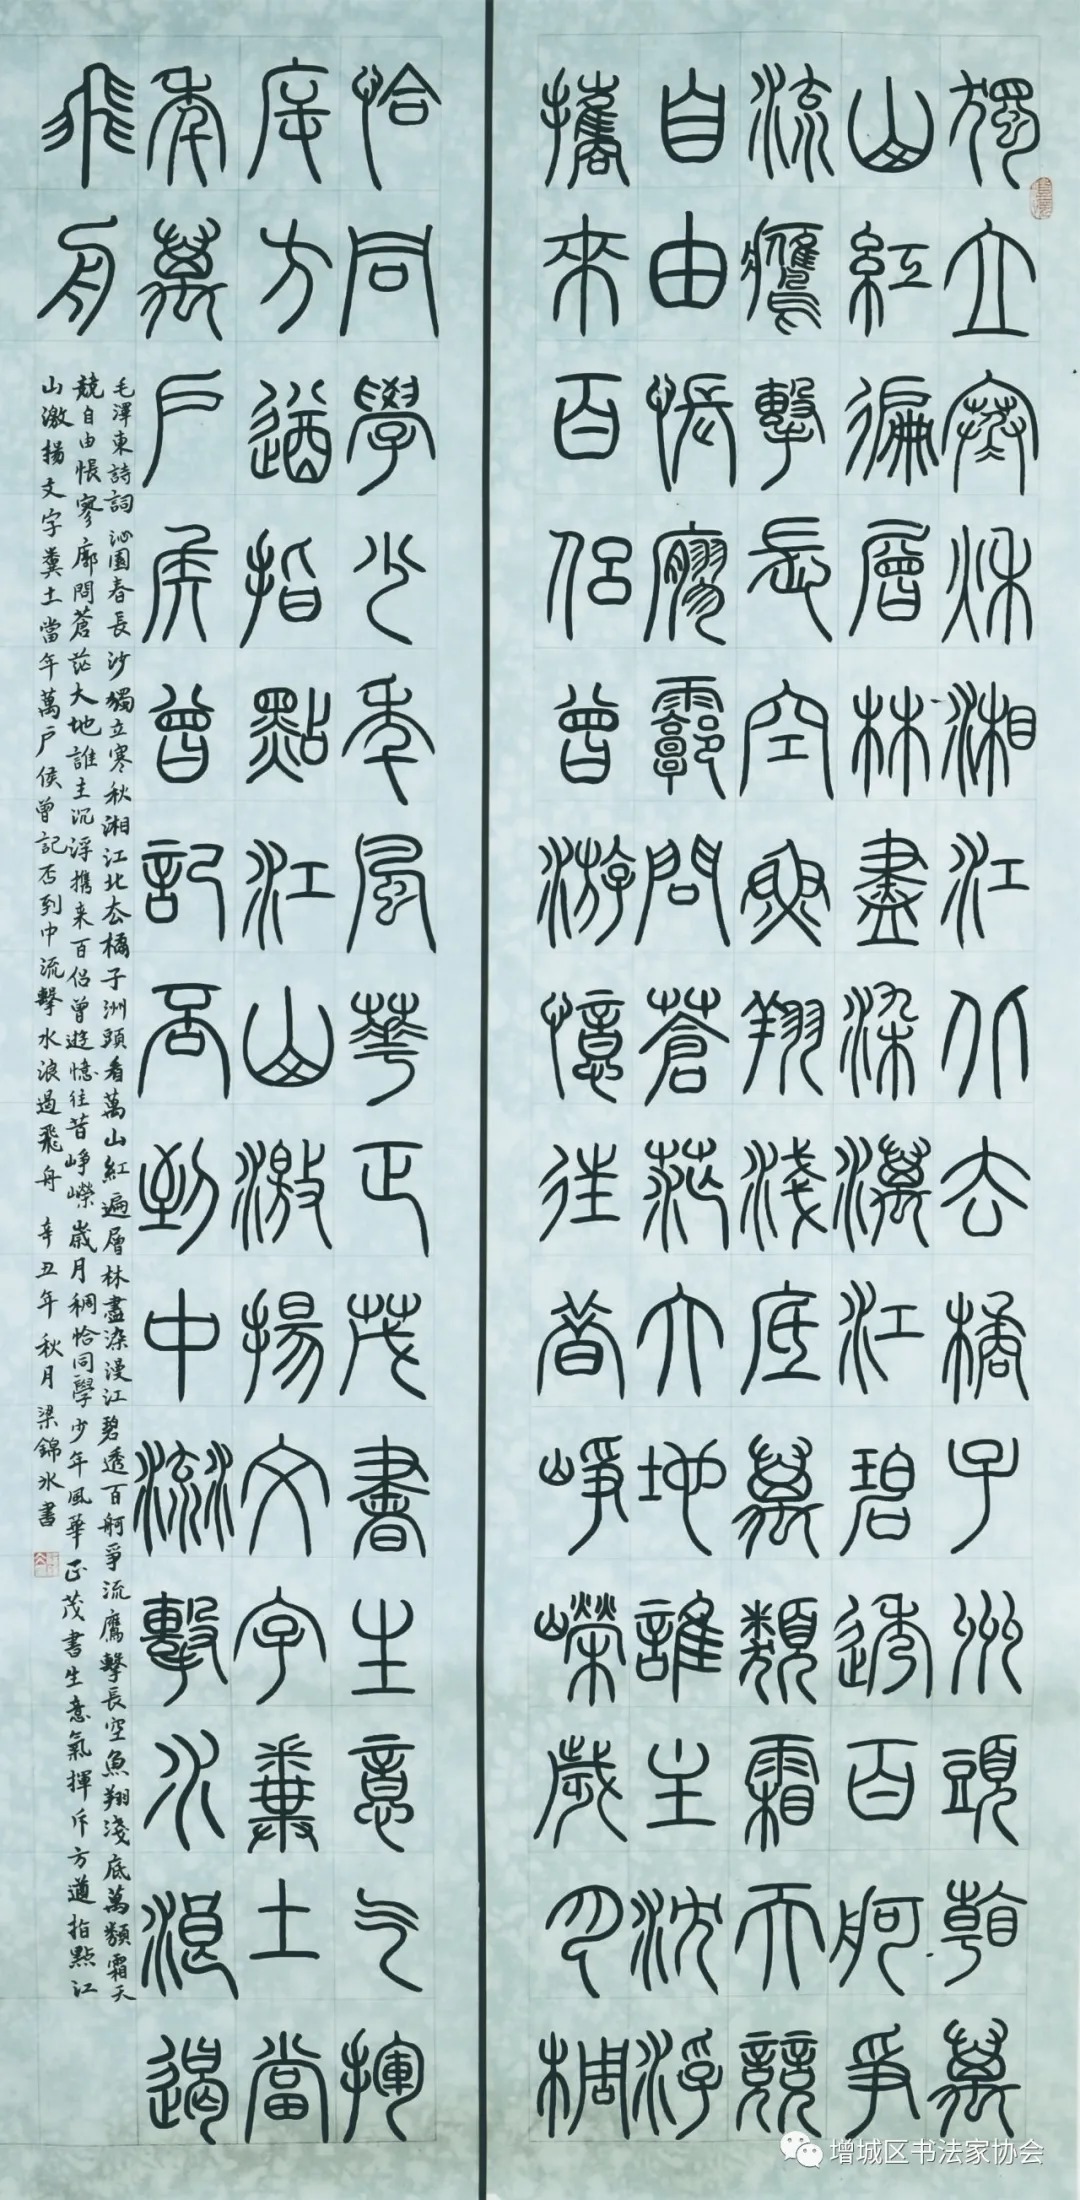 獨立寒秋湘江北去橘子州頭看萬
山紅徧層林盡染漫江碧透百舸爭
流鷹擊長空魚翔淺底萬類霜天競
自由悵寥廓問蒼茫大地誰主沈浮
攜來百侶曾游憶往昔崢嶸歲月稠
恰同學少年風華正茂書生意气揮
斥方遒指點江山激揚文字糞土當
年萬戶侯曾記否到中流擊水浪遏
飛舟
毛澤東詩詞沁園春長沙獨立寒秋湘江北去橘子洲頭看萬山紅遍層林盡染漫江碧透百舸爭流鷹擊長空魚翔淺底萬類霜天
競自由悵寥廓問蒼茫大地誰主沉浮携来百侣曾遊憶往昔崢嶸嵗月稠恰同學少年風華正茂書生意氣揮斥方遒指點江
山激揚文字糞土當年萬戶侯曾記否到中流擊水浪遏飛舟 辛丑年秋月梁錦冰書
增城区书法家协会